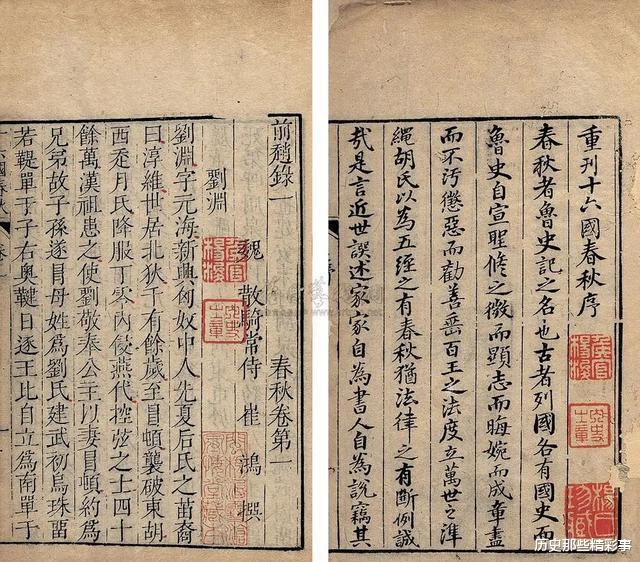 重刊十六國春秋序
春秋者魯史記之名也古者列國各有國史而
魯史自宣聖修之微而顯志而晦婉而成章盡
而不汚懲惡而勸善垂百王之法度立萬世之準
繩胡氏以為五經之有春秋猶法律之有斷例誠
㦲是言近世譔述家家自為書人自為說竊其
侯官楊浚
前趙錄一 春秋卷第一
魏 散騎常侍 崔 鴻 撰
劉淵
劉淵字元海新興匈奴中人先夏后氏之苗裔
曰淳維世居北狄千有餘歲至冒頓襲破東胡
西走月氏降服丁零內侵燕代控弦之士四十
餘萬漢祖患之使劉敬奉公主以妻冒頓約爲
兄弟故子孫遂冒母姓爲劉氏建武初烏珠畱
若鞮單于子右奧鞬日逐王比自立爲南單于
六國春秋
侯官楊浚
历史那些精彩事